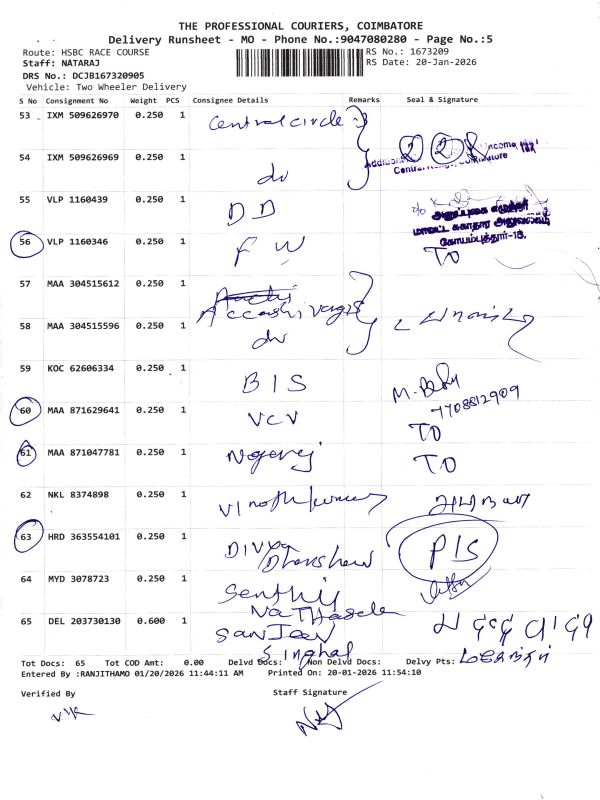 THE PROFESSIONAL COURIERS, COIMBATORE
Delivery Runsheet - MO - Phone No.:9047080280 - Page No.:5
Route: HSBC RACE COURSE RS No.: 1673209
Staff: NATARAJ RS Date: 20-Jan-2026
DRS No.: DCJB167320905
Vehicle: Two Wheeler Delivery
S No Consignment No Weight PCS Consignee Details Remarks Seal & Signature
53 IXM 509626970 0.250 1 Central circle
54 IXM 509626969 0.250 1 do
55 VLP 1160439 0.250 1 DD
அறுப்புகை எழுத்தர்
மாவட்ட சுகாதார அலுவலகம்
கோயம்புத்தூர்-18.
56 VLP 1160346 0.250 1 FW TD
57 MAA 304515612 0.250 1
58 MAA 304515596 0.250 1 do
59 KOC 62606334 0.250 1 BIS
7708812909
60 MAA 871629641 0.250 1 VCV TD
61 MAA 871047781 0.250 1 Nagaraj TD
62 NKL 8374898 0.250 1 Vinothkumar
63 HRD 363554101 0.250 1 Divya Dharshan P/S
64 MYD 3078723 0.250 1 Senthil
65 DEL 203730130 0.600 1 Sanjeev
Singhal
Tot Docs: 65 Tot COD Amt: 0.00 Delvd Docs: Non Delvd Docs: Delvy Pts:
Entered By :RANJITHAMO 01/20/2026 11:44:11 AM Printed On: 20-01-2026 11:54:10
Verified By Staff Signature